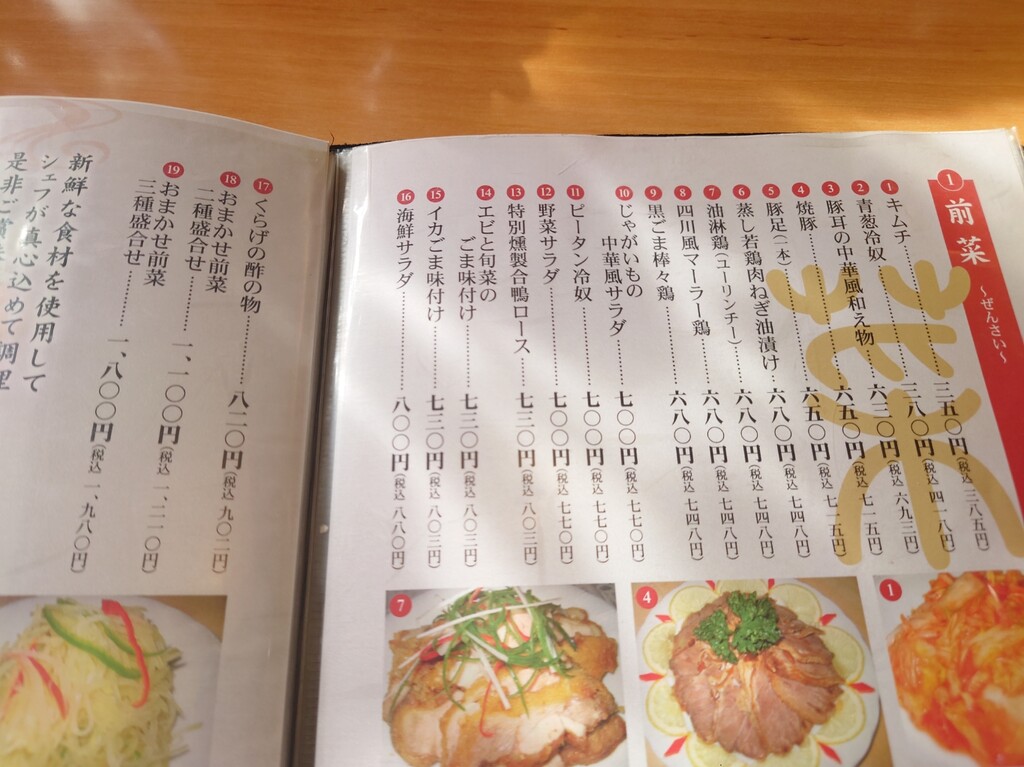 1 前菜 ～ぜんさい～
菜
1 キムチ…三五〇円(税込 三八五円)
2 青葱冷奴…三八〇円(税込 四一八円)
3 豚耳の中華風和え物…六三〇円(税込 六九三円)
4 焼豚…六五〇円(税込 七一五円)
5 豚足(一本)…六五〇円(税込 七一五円)
6 蒸し若鶏肉ねぎ油漬け…六八〇円(税込 七四八円)
7 油淋鶏(ユーリンチー)…六八〇円(税込 七四八円)
8 四川風マーラー鶏…六八〇円(税込 七四八円)
9 黒ごま棒々鶏…六八〇円(税込 七四八円)
10 じゃがいもの
中華風サラダ…七〇〇円(税込 七七〇円)
11 ピータン冷奴…七〇〇円(税込 七七〇円)
12 野菜サラダ…七〇〇円(税込 七七〇円)
13 特別燻製合鴨ロース…七三〇円(税込 八〇三円)
14 エビと旬菜の
ごま味付け…七三〇円(税込 八〇三円)
15 イカごま味付け…七三〇円(税込 八〇三円)
16 海鮮サラダ…八〇〇円(税込 八八〇円)
17 くらげの酢の物…八二〇円(税込 九〇二円)
18 おまかせ前菜
二種盛合せ…一、一〇〇円(税込 一、二一〇円)
19 おまかせ前菜
三種盛合せ…一、八〇〇円(税込 一、九八〇円)
新鮮な食材を使用して
シェフが真心込めて調理
是非ご賞
7
4
1